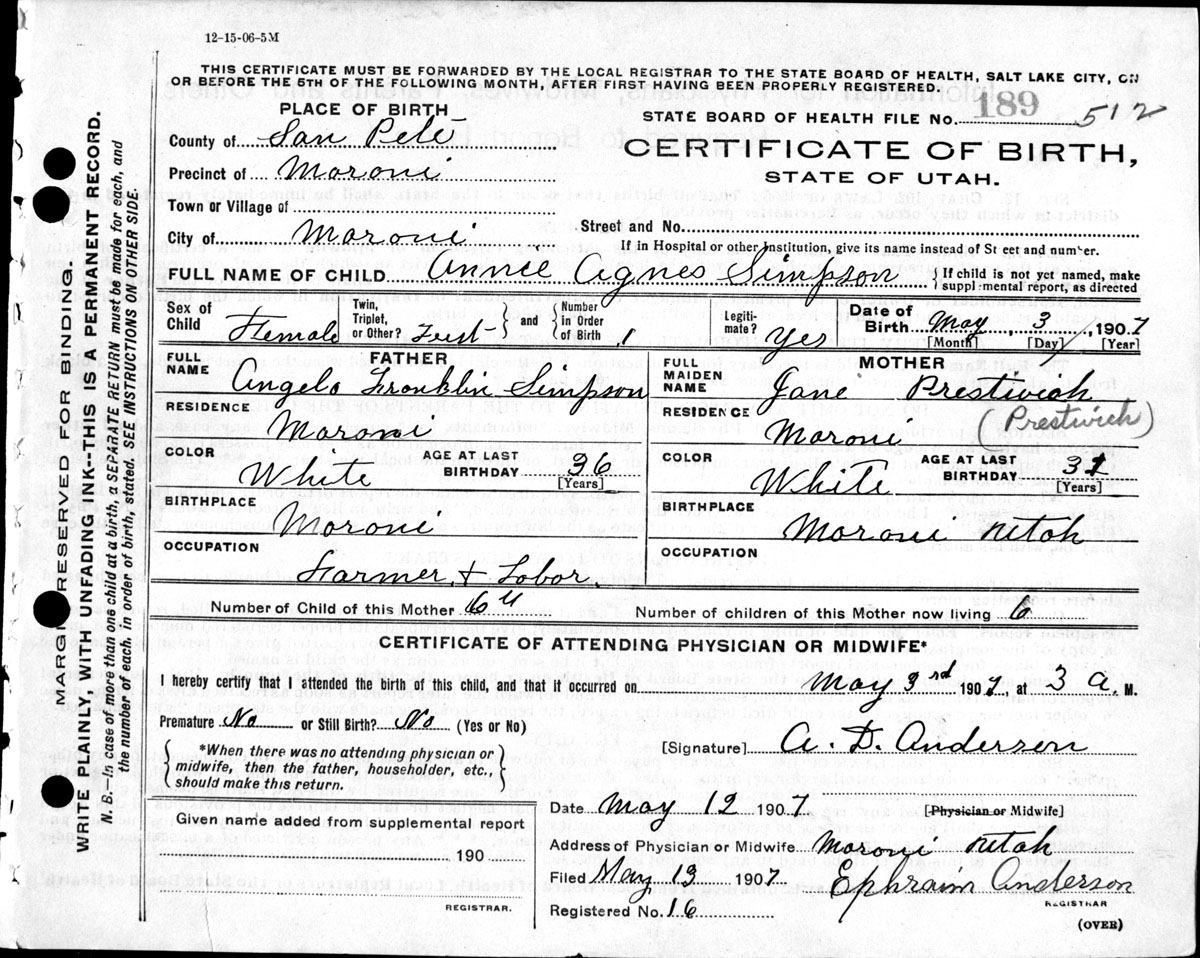 12-15-06-5M
THIS CERTIFICATE MUST BE FORWARDED BY THE LOCAL REGISTRAR TO THE STATE BOARD OF HEALTH, SALT LAKE CITY, ON
OR BEFORE THE 5TH OF THE FOLLOWING MONTH, AFTER FIRST HAVING BEEN PROPERLY REGISTERED.
PLACE OF BIRTH
STATE BOARD OF HEALTH FILE No. 189 512
County of San Pete
CERTIFICATE OF BIRTH,
STATE OF UTAH.
Precinct of Moroni
Town or Village of
Street and No.
City of Moroni
If in Hospital or other Institution, give its name instead of St eet and number.
FULL NAME OF CHILD Annie Agnes Simpson
{ If child is not yet named, make
suppl mental report, as directed
Sex of Child Female
Twin, Triplet, or Other?
and { Number in Order of Birth 1
Legiti-mate? Yes
Date of Birth May 3 1907
[Month] [Day] [Year]
FATHER
FULL NAME Angelo Franklin Simpson
RESIDENCE Moroni
COLOR White AGE AT LAST BIRTHDAY 36 [Years]
BIRTHPLACE Moroni
OCCUPATION Farmer & Labor.
MOTHER
FULL MAIDEN NAME Jane Prestwich
(Prestwich)
RESIDENCE Moroni
COLOR White AGE AT LAST BIRTHDAY 31 [Years]
BIRTHPLACE Moroni Utah
OCCUPATION
Number of Child of this Mother 6
Number of children of this Mother now living 6
CERTIFICATE OF ATTENDING PHYSICIAN OR MIDWIFE*
I hereby certify that I attended the birth of this child, and that it occurred on May 3rd 1907, at 3 a. M.
Premature No or Still Birth? No (Yes or No)
{ *When there was no attending physician or
midwife, then the father, householder, etc.,
should make this return. }
[Signature] A. D. Anderson
[Physician or Midwife]
Given name added from supplemental report
190
REGISTRAR.
Date May 12 1907
Address of Physician or Midwife Moroni Utah
Filed May 13 1907 Ephraim Anderson
REGISTRAR
Registered No. 16
(OVER)
MARGI RESERVED FOR BINDING.
WRITE PLAINLY, WITH UNFADING INK--THIS IS A PERMANENT RECORD.
N. B.—In case of more than one child at a birth, a SEPARATE RETURN must be made for each, and
the number of each, in order of birth, stated. SEE INSTRUCTIONS ON OTHER SIDE.